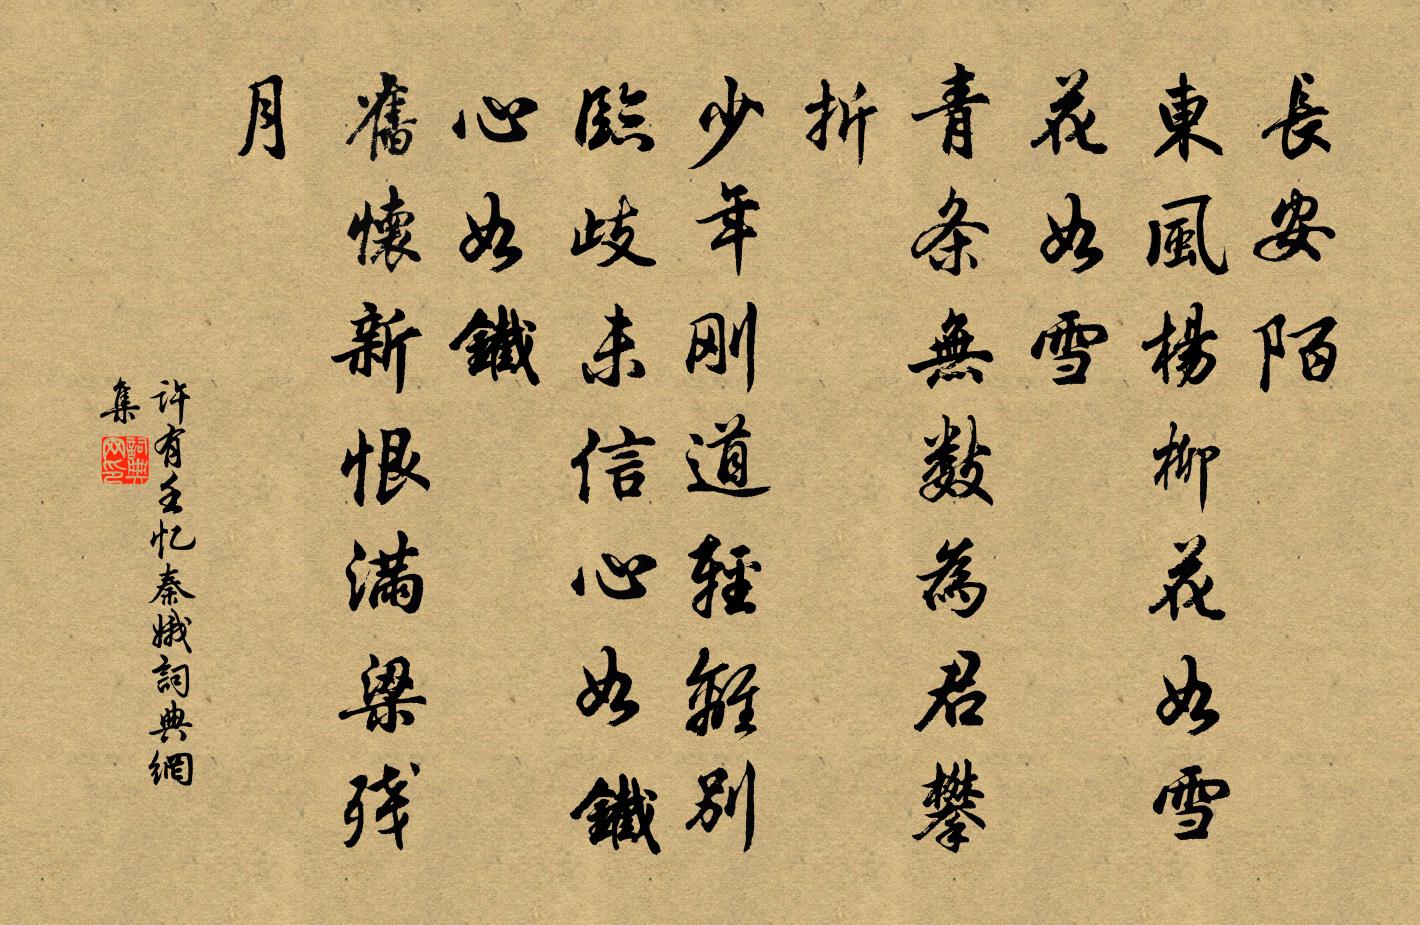 長安陌
東風楊柳花如雪
花如雪
青条無数為君攀
折
少年刚道輕離别
臨歧未信心如鐵
心如鐵
舊懷新恨满梁残
月
许有壬忆秦娥詞典網
集
詞典网印